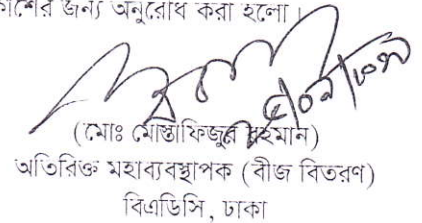 কাশের জন্য অনুরোধ করা হলো।
(মোঃ মোস্তাফিজুর রহমান)
অতিরিক্ত মহাব্যবস্থাপক (বীজ বিতরণ)
বিএডিসি, ঢাকা